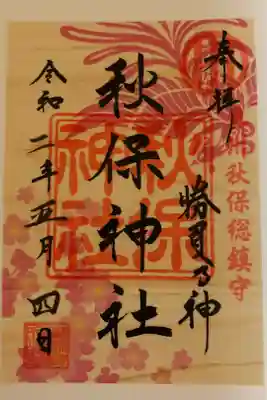 奉拝
秋保総鎮守
勝負の神
秋保神社
秋保神社
令和二年五月四日